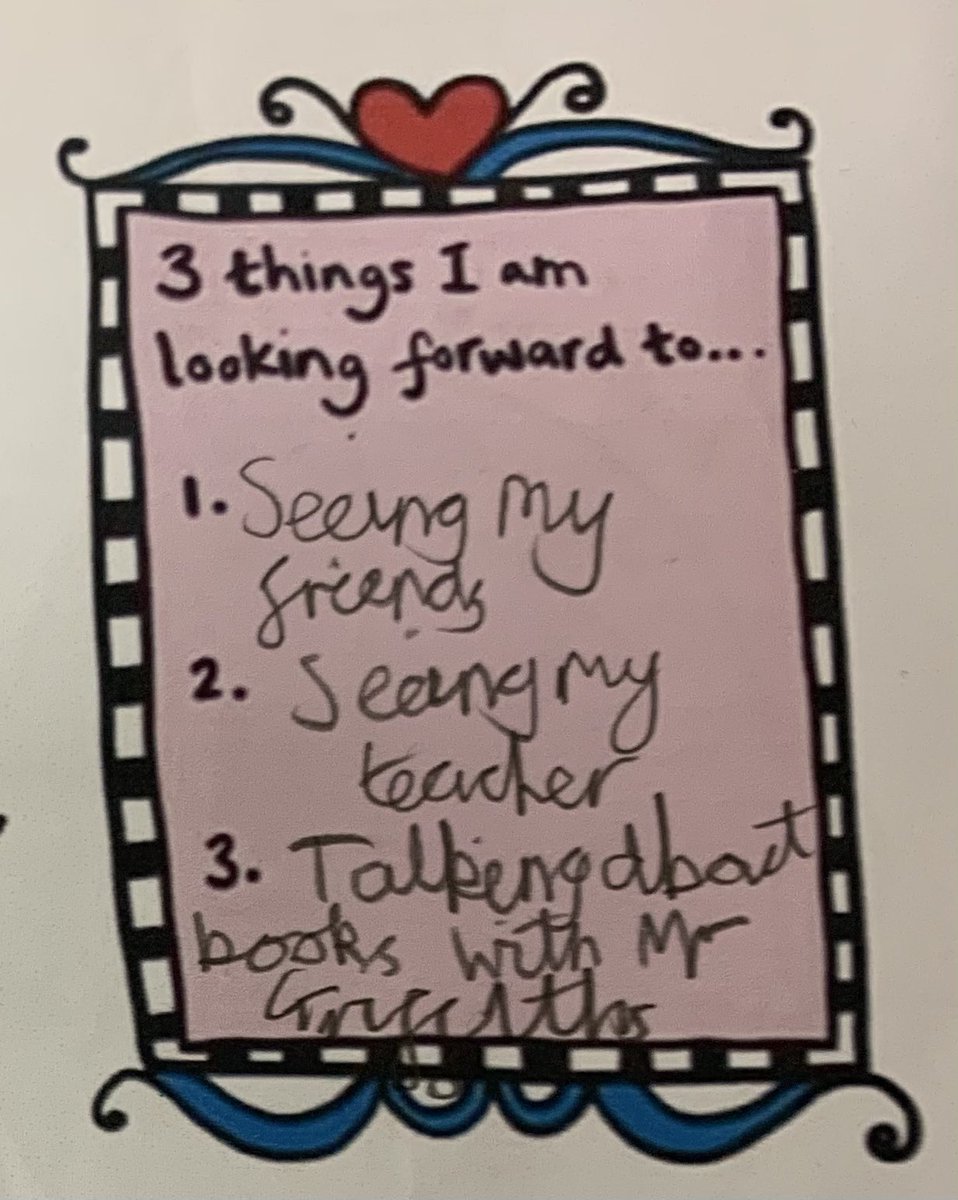 3 things I am
looking forward to...
1. Seeing my
friends
2. Seeing my
teacher
3. Talking about
books with Mr
Griffiths